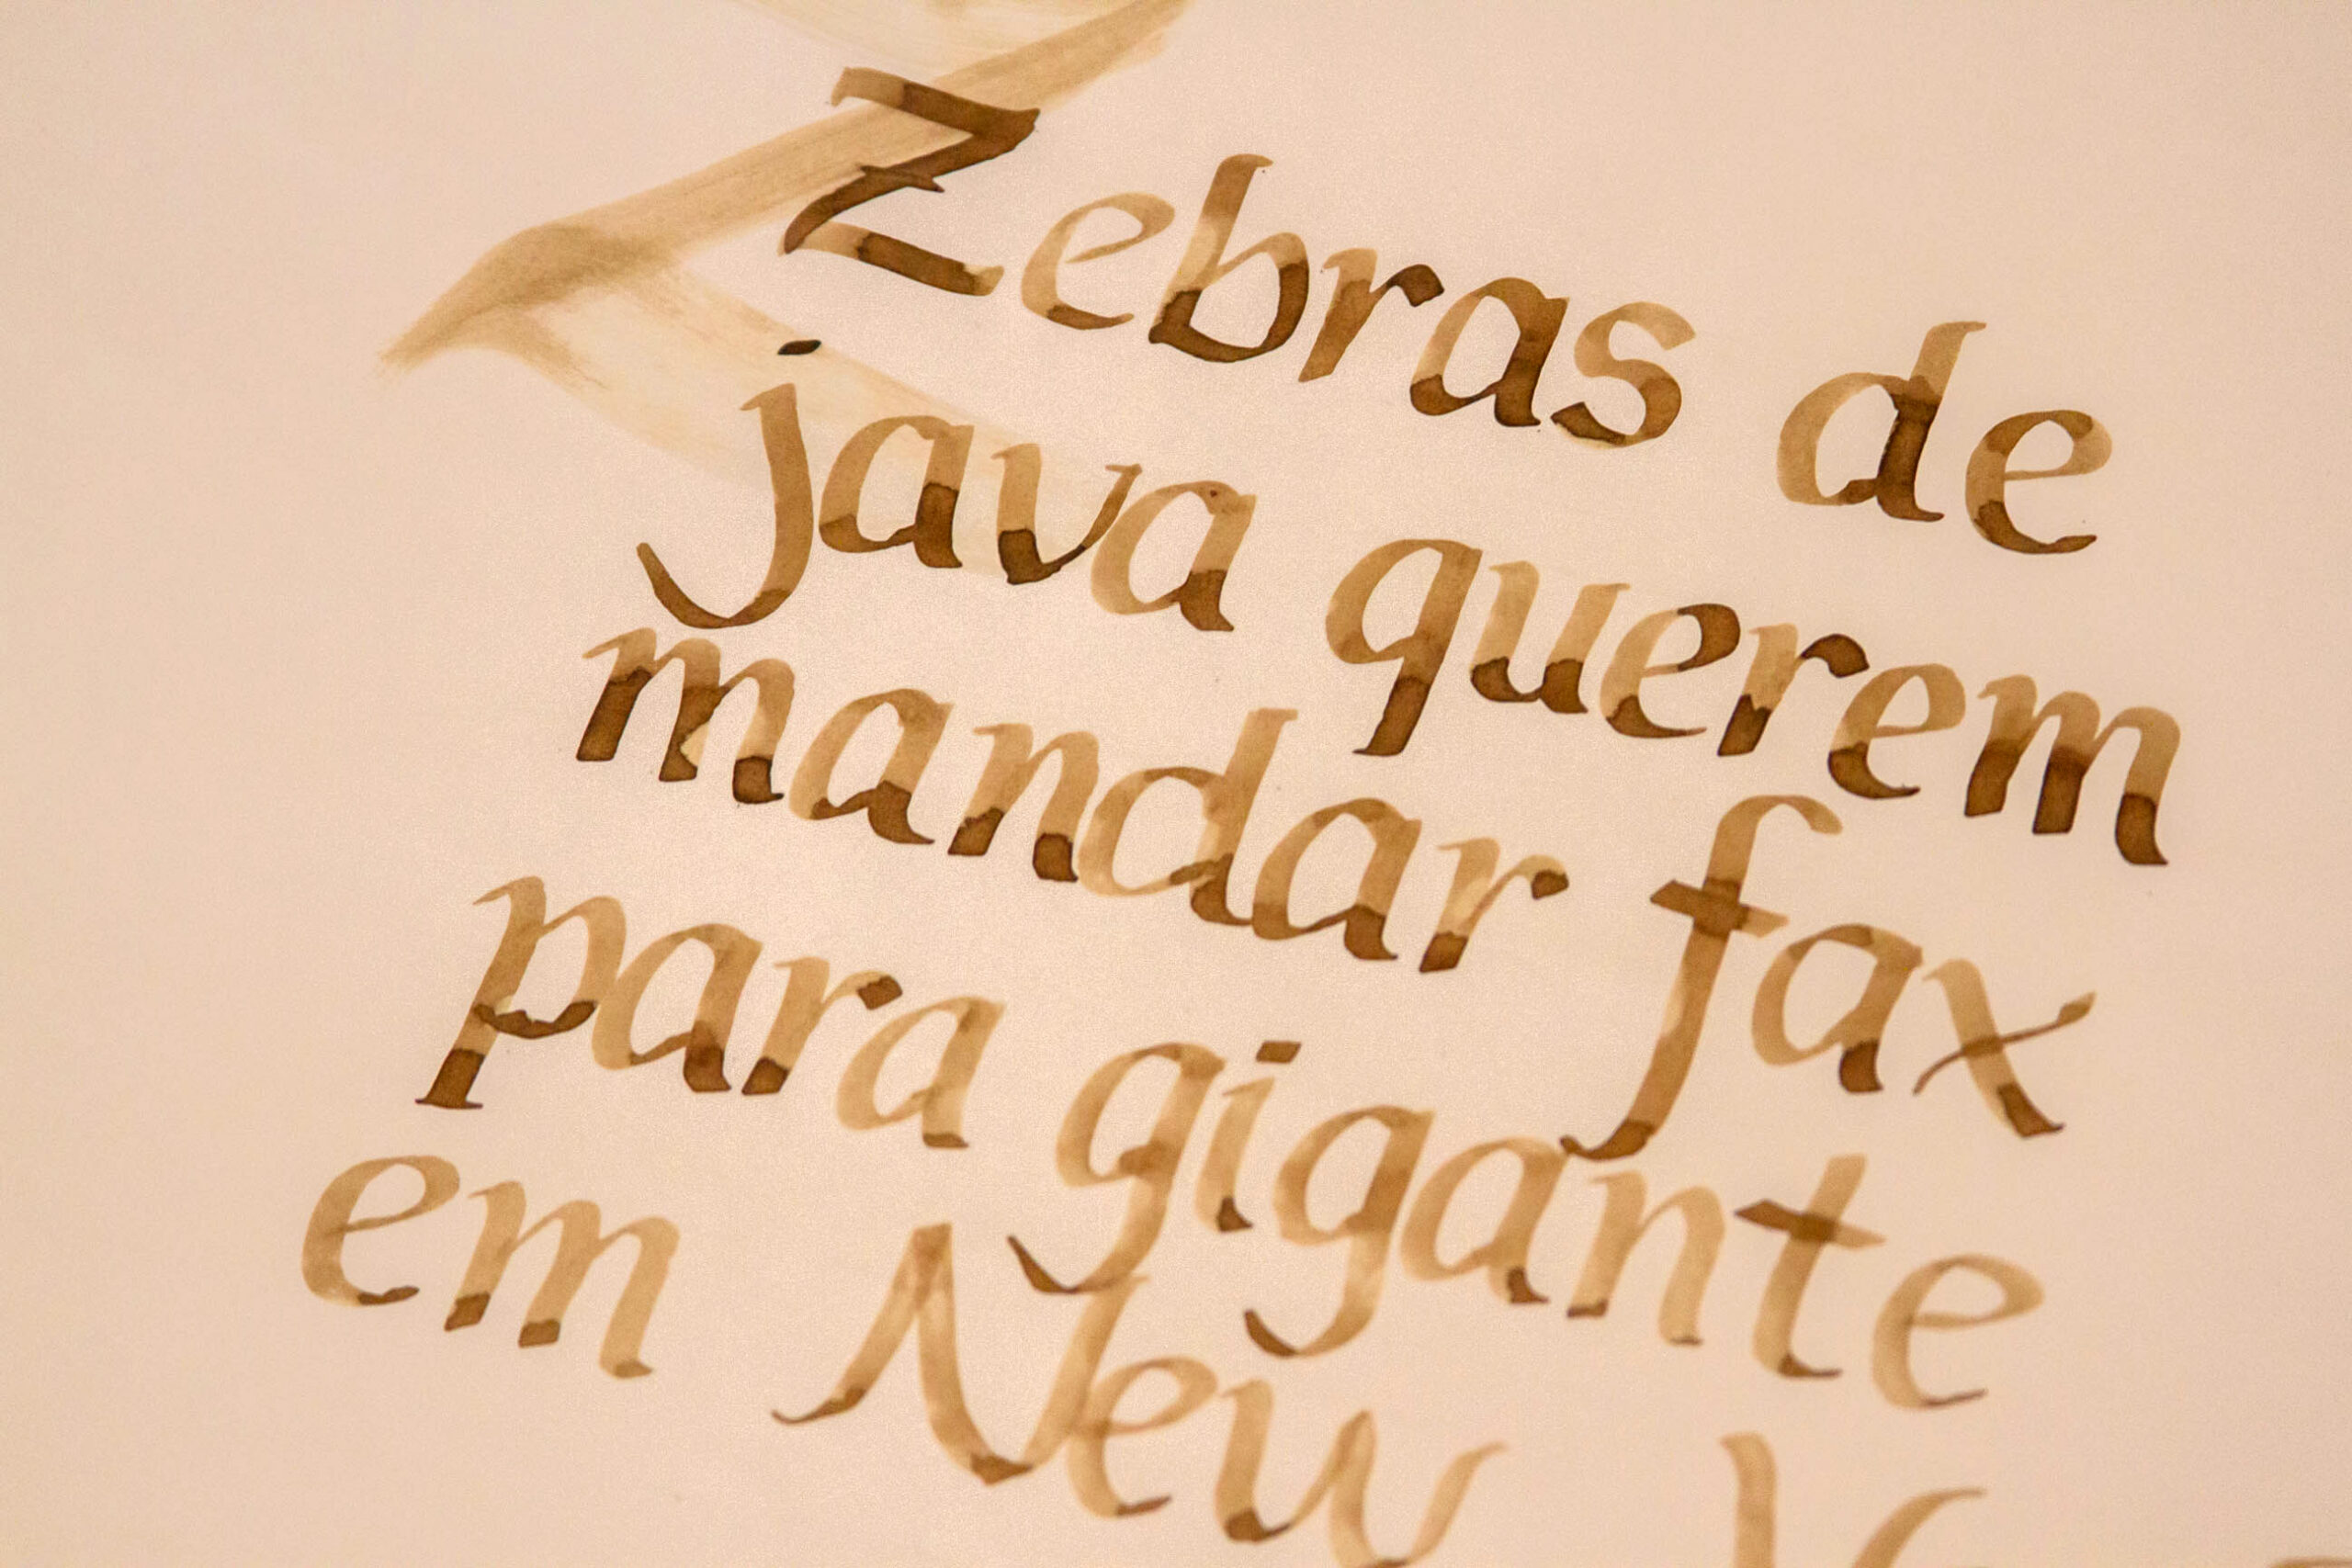 Zebras de
java querem
mandar fax
para gigante
em New